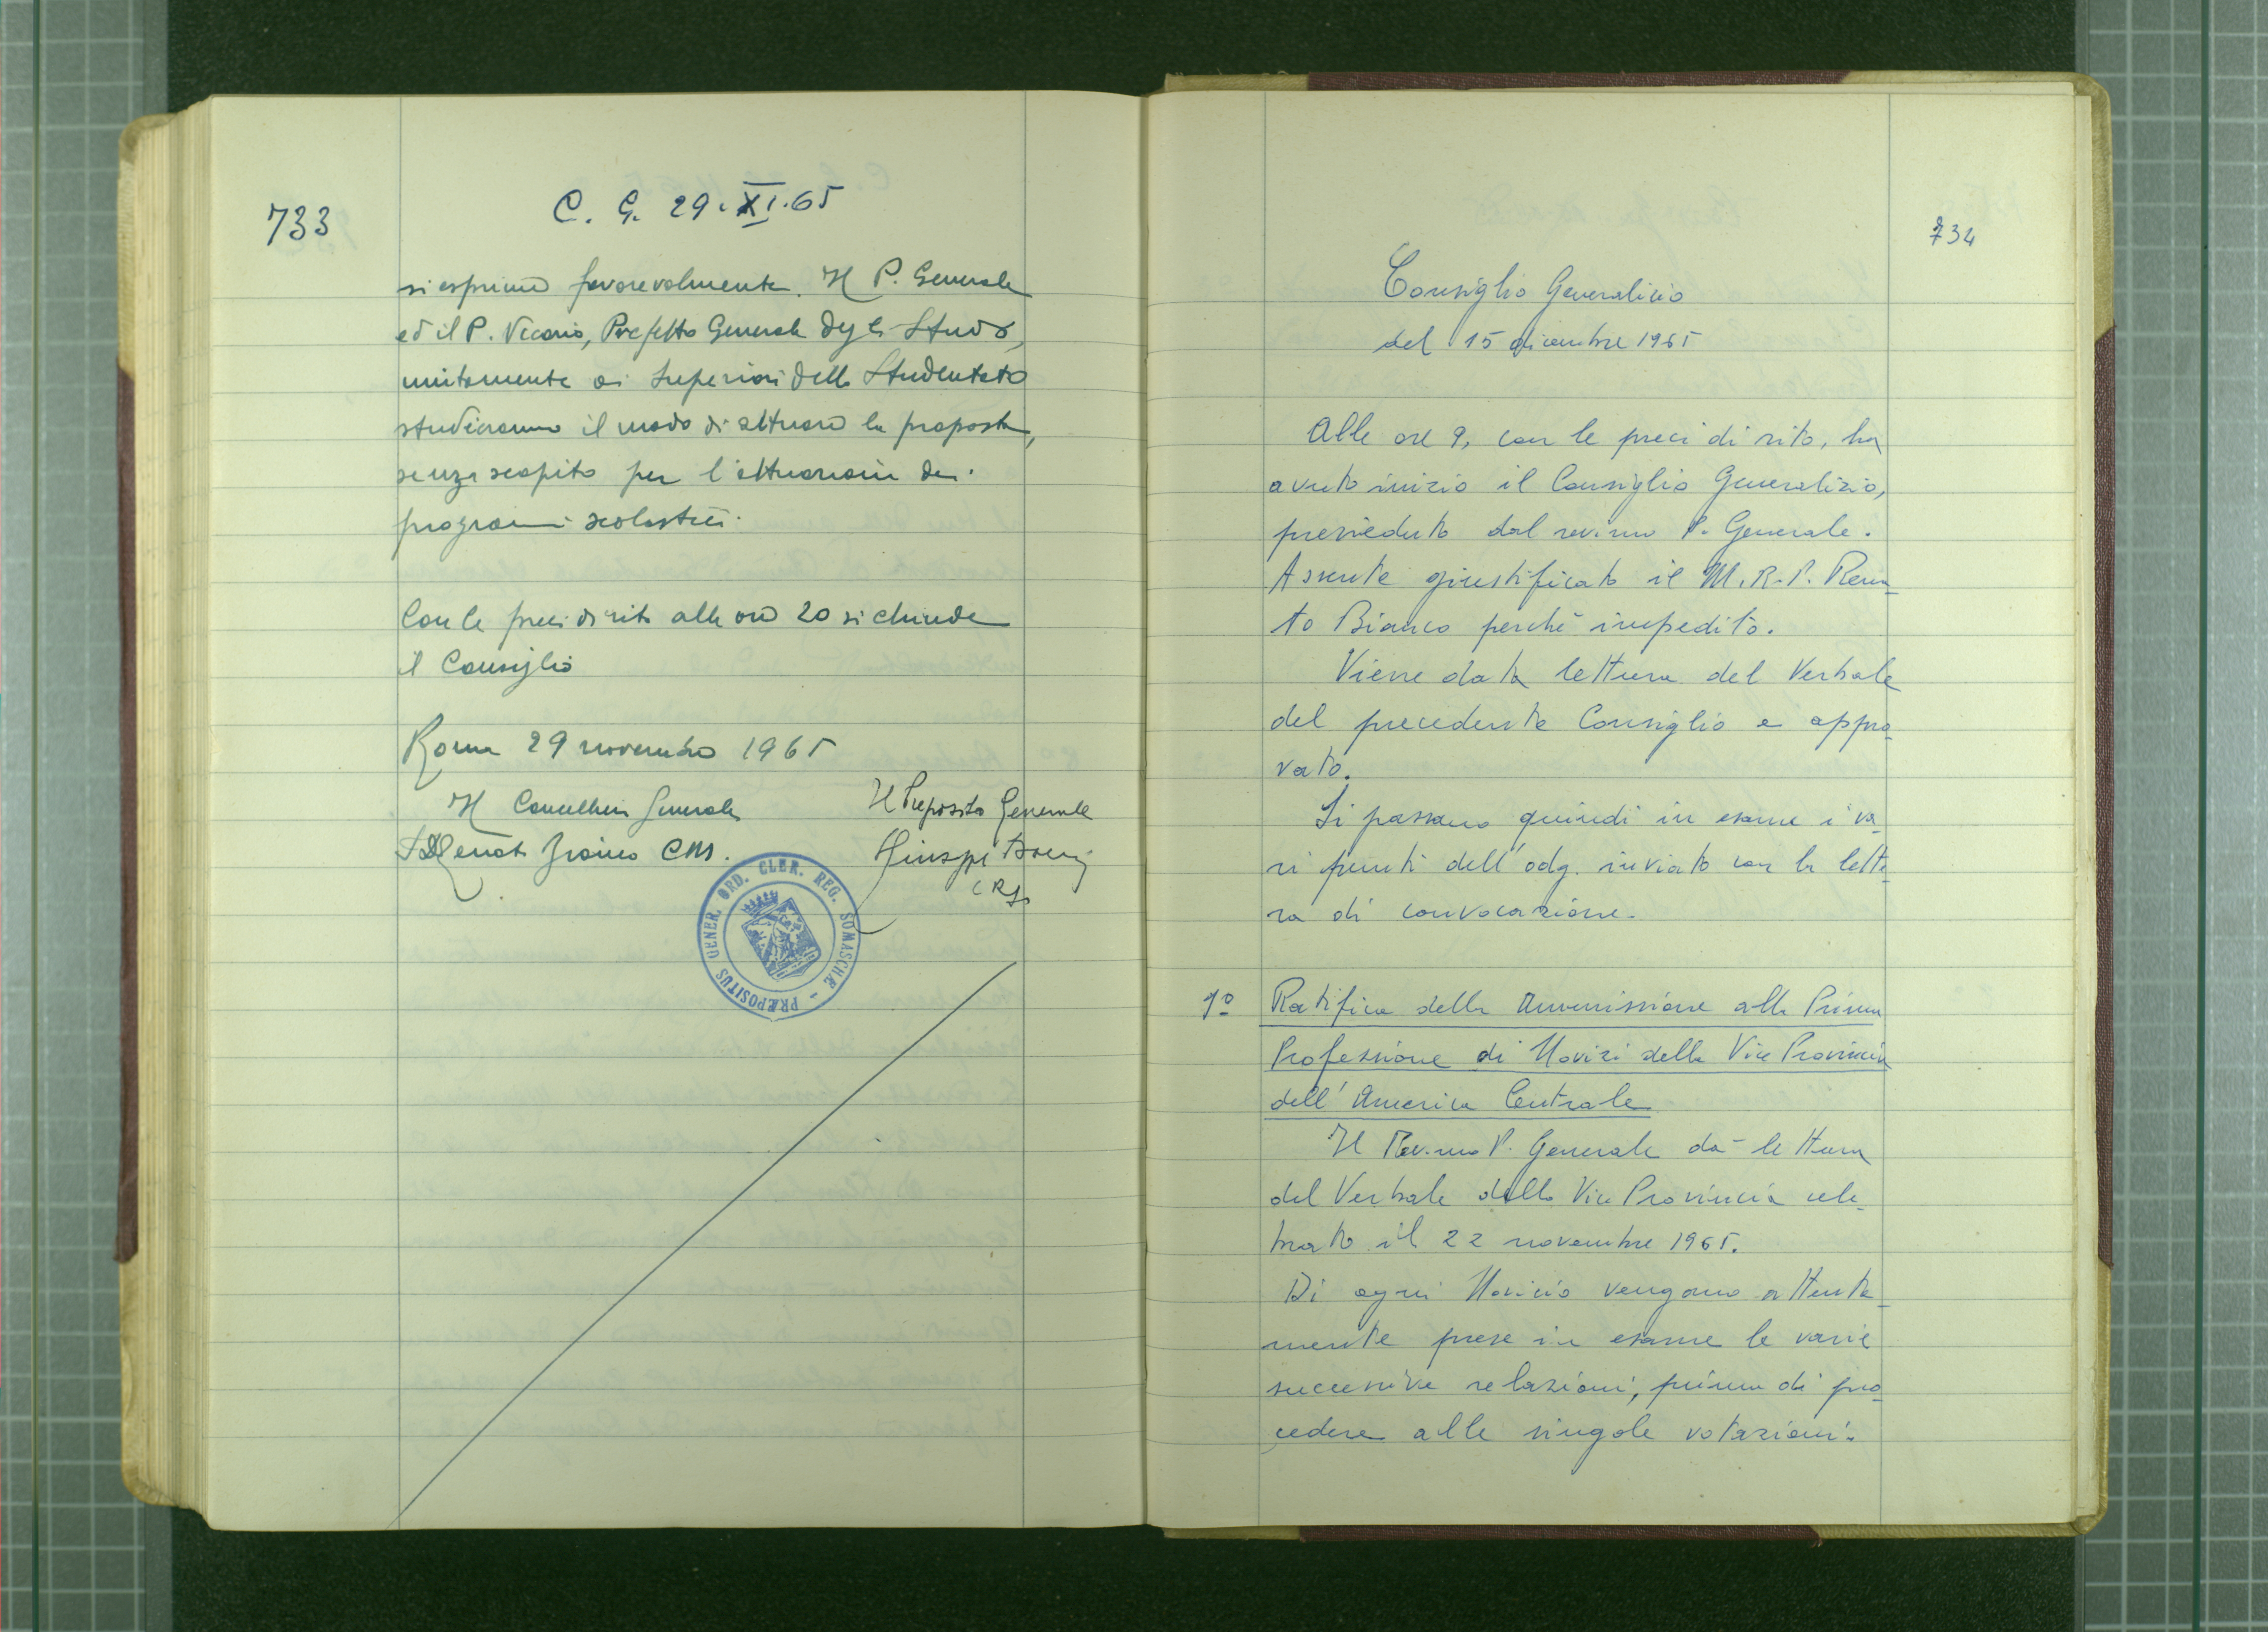 733
C. G. 29.XI.65
si esprime favorevolmente. Il P. Generale
ed il P. Vicario, Prefetto Generale degli Studi,
unitamente ai Superiori dello Studentato
studieranno il modo di attuare la proposta,
senza scapito per l'attuazione dei
programmi scolastici.
Con le preci di rito alle ore 20 si chiude
il Consiglio
Roma 29 novembre 1965
Il Cancelliere Generale
Il Preposito Generale
P. Renato Bianco CRS.
Giuseppe
CRS
PRÆPOSITUS GENER. ORD. CLER. REG. SOMASCHÆ -
734
Consiglio Generalizio
del 15 dicembre 1965
Alle ore 9, con le preci di rito, ha
avuto inizio il Consiglio Generalizio,
presieduto dal rev.mo P. Generale.
Assente giustificato il M.R.P. Rena-
to Bianco perchè impedito.
Viene data lettura del Verbale
del precedente Consiglio e appro-
vato.
Si passano quindi in esame i va-
ri punti dell'odg. inviato con la lette-
ra di convocazione.
1º Ratifica della Ammissione alla Prima
Professione di Novizi della Vice Provincia
dell'America Centrale
Il Rev.mo P. Generale dà lettura
del Verbale della Vice Provincia cele-
brato il 22 novembre 1965.
Di ogni Novizio vengono attenta-
mente prese in esame le varie
successive relazioni, prima di pro-
cedere alle singole votazioni.